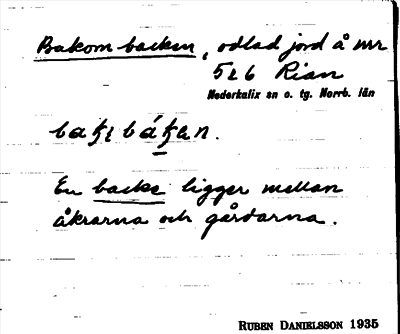 Bakom backen, odlad jord å nr
5 & 6 Rian
Nederkalix sn o. tg. Norrb. län
En backe ligger mellan
åkrarna och gårdarna.
RUBEN DANIELSSON 1935